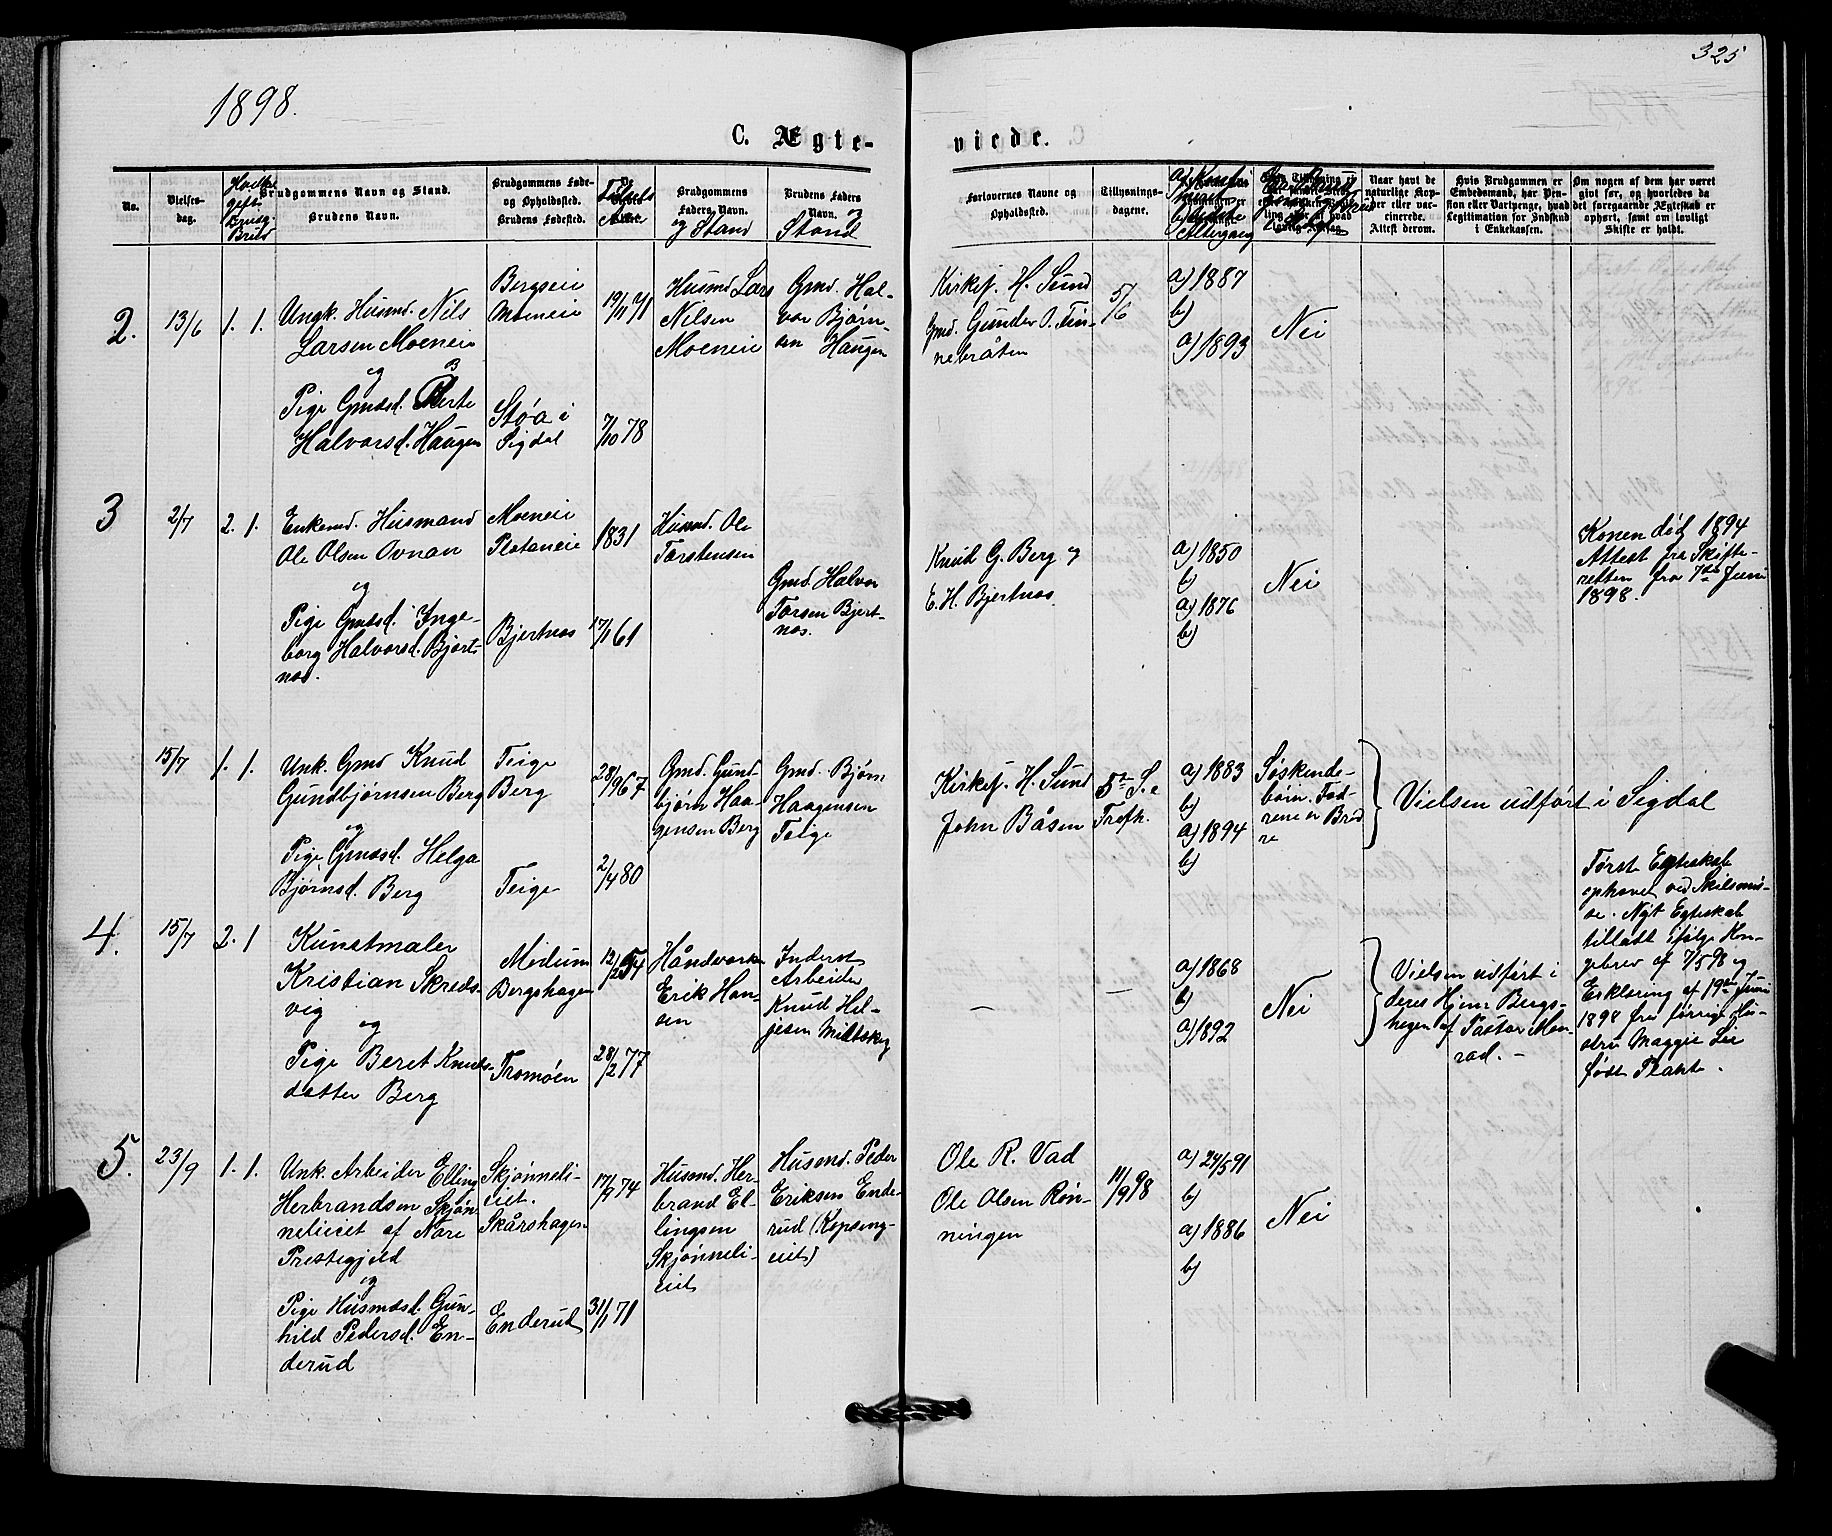 325
1898.
C. Ægte-
viede.
No.
Vielses-
dag.
Brudgommens Navn og Stand.
Brudens Navn.
Brudgommens Føde-
og Opholdssted.
Brudens Fødested.
Brudgommens
Faders Navn.
og Stand
Brudens Faders
Navn. og
Stand
Forlovernes Navne og
Opholdssted.
Tillysnings-
dagene.
Naar havt de
naturlige Kop-
per eller vac-
cinerede.
Attest derom.
Hvis Brudgommen er
Embedsmand, har Pen-
sion eller Vartpenge, hvad
Legitimation for Indskud
i Enkekassen.
Om nogen af dem har været
givt før, og hvorledes da
det foregaaende Ægteskab er
ophørt, samt om lovligt
Skifte er holdt.
2.
13/6
1. 1.
Ungk. Husmd. Nils
Larsen Moeneie
og
Pige Gmdsd. Berte
Halvorsd. Haugen
Bergseie
Moeneie
Støa i
Sigdal
19/11 71
7/10 78
Husmd Lars
Nilsen
Moeneie
Gmd. Hal-
vor Bjørn-
sen Haugen
Kirkesj. H. Sund
Gmd. Gunder O. Fin-
nebråten
5/6
a) 1887
b)
a) 1893
Nei
3
2/7
2. 1.
Enkemd. Husmand
Ole Olsen Ovnan
og
Pige Gmdsd. Inge-
borg Halvorsd. Bjert-
næs.
Moeneie
Plataneie
Bjertnæs
1831
17/1 61
Husmd. Ole
Torstensen
Gmd. Halvor
Torsen Bjert-
næs.
Knud G. Berg og
E. H. Bjertnæs
a) 1850
b)
a) 1876
b)
Nei
Konen død 1894
Attest fra Skifte-
retten fra 7de Juni
1898.
15/7
1. 1.
Unk. Gmd Knud
Gundbjørnsen Berg
og
Pige Gmdsd. Helga
Bjørnsd. Berg
Teige
Berg
Teige
28/9 67
2/4 80
Gmd. Gund-
bjørn Haa-
gensen Berg
Gmd. Bjørn
Haagensen
Teige
Kirkesj. H. Sund
John Båsen
5te S. e
Trefh.
a) 1883
b)
a) 1894
b)
Søskende-
børn. Fæd-
rene er Brød
re
Vielsen udført i Sigdal
4.
15/7
2. 1
Kunstmaler
Kristian Skreds-
vig
og
Pige Beret Knuds-
datter Berg
Modum
Bergshagen
Tromøen
12/3 54
28/2 77
Håndværker
Erik Han-
sen
Inderst
Arbeider
Knud Hel-
jesen
–
–
a) 1868
b)
a) 1892
Nei
Vielsen udført i
deres Hjem Bergs-
hagen af Pastor Mon-
rad. –
Først Egteskab
ophævet ved Skilsmis-
se. Nyt Egteskab
tilladt ifølge Kon-
gebrev af 7/5 98 og
Erklæring af 19de Juni
1898 fra forrige Hu-
stru Maggie Lie
født Plahte.
5.
23/9
1. 1.
Unk. Arbeider Elling
Herbrandsen Skjøn-
nelieiet af Nore
Prestegjeld
og
Pige Husmdsd. Gun-
hild Pedersd. En-
derud
Skjønneli-
eiet.
Skårshagen
Enderud
17/9 74
31/1 71
Husmd. Her-
brand El-
lingsen
Skjønneli-
eiet
Husmd. Peder
Eriksen Ende-
rud (Kopseng-
eiet)
Ole R. Vad
Ole Olsen Røn-
ningen
11/9 98
a) 24/5 91
b)
a) 1886
b)
Nei